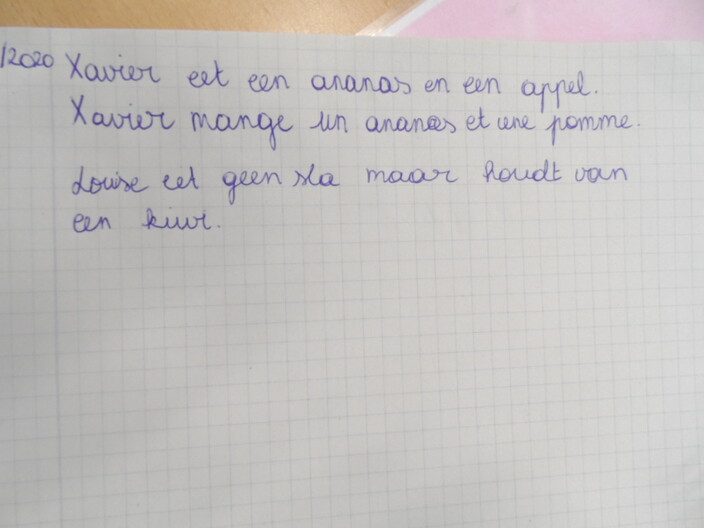 /2020 Xavier eet een ananas en een appel.
Xavier mange un ananas et une pomme.
Louise eet geen sla maar houdt van
een kiwi.